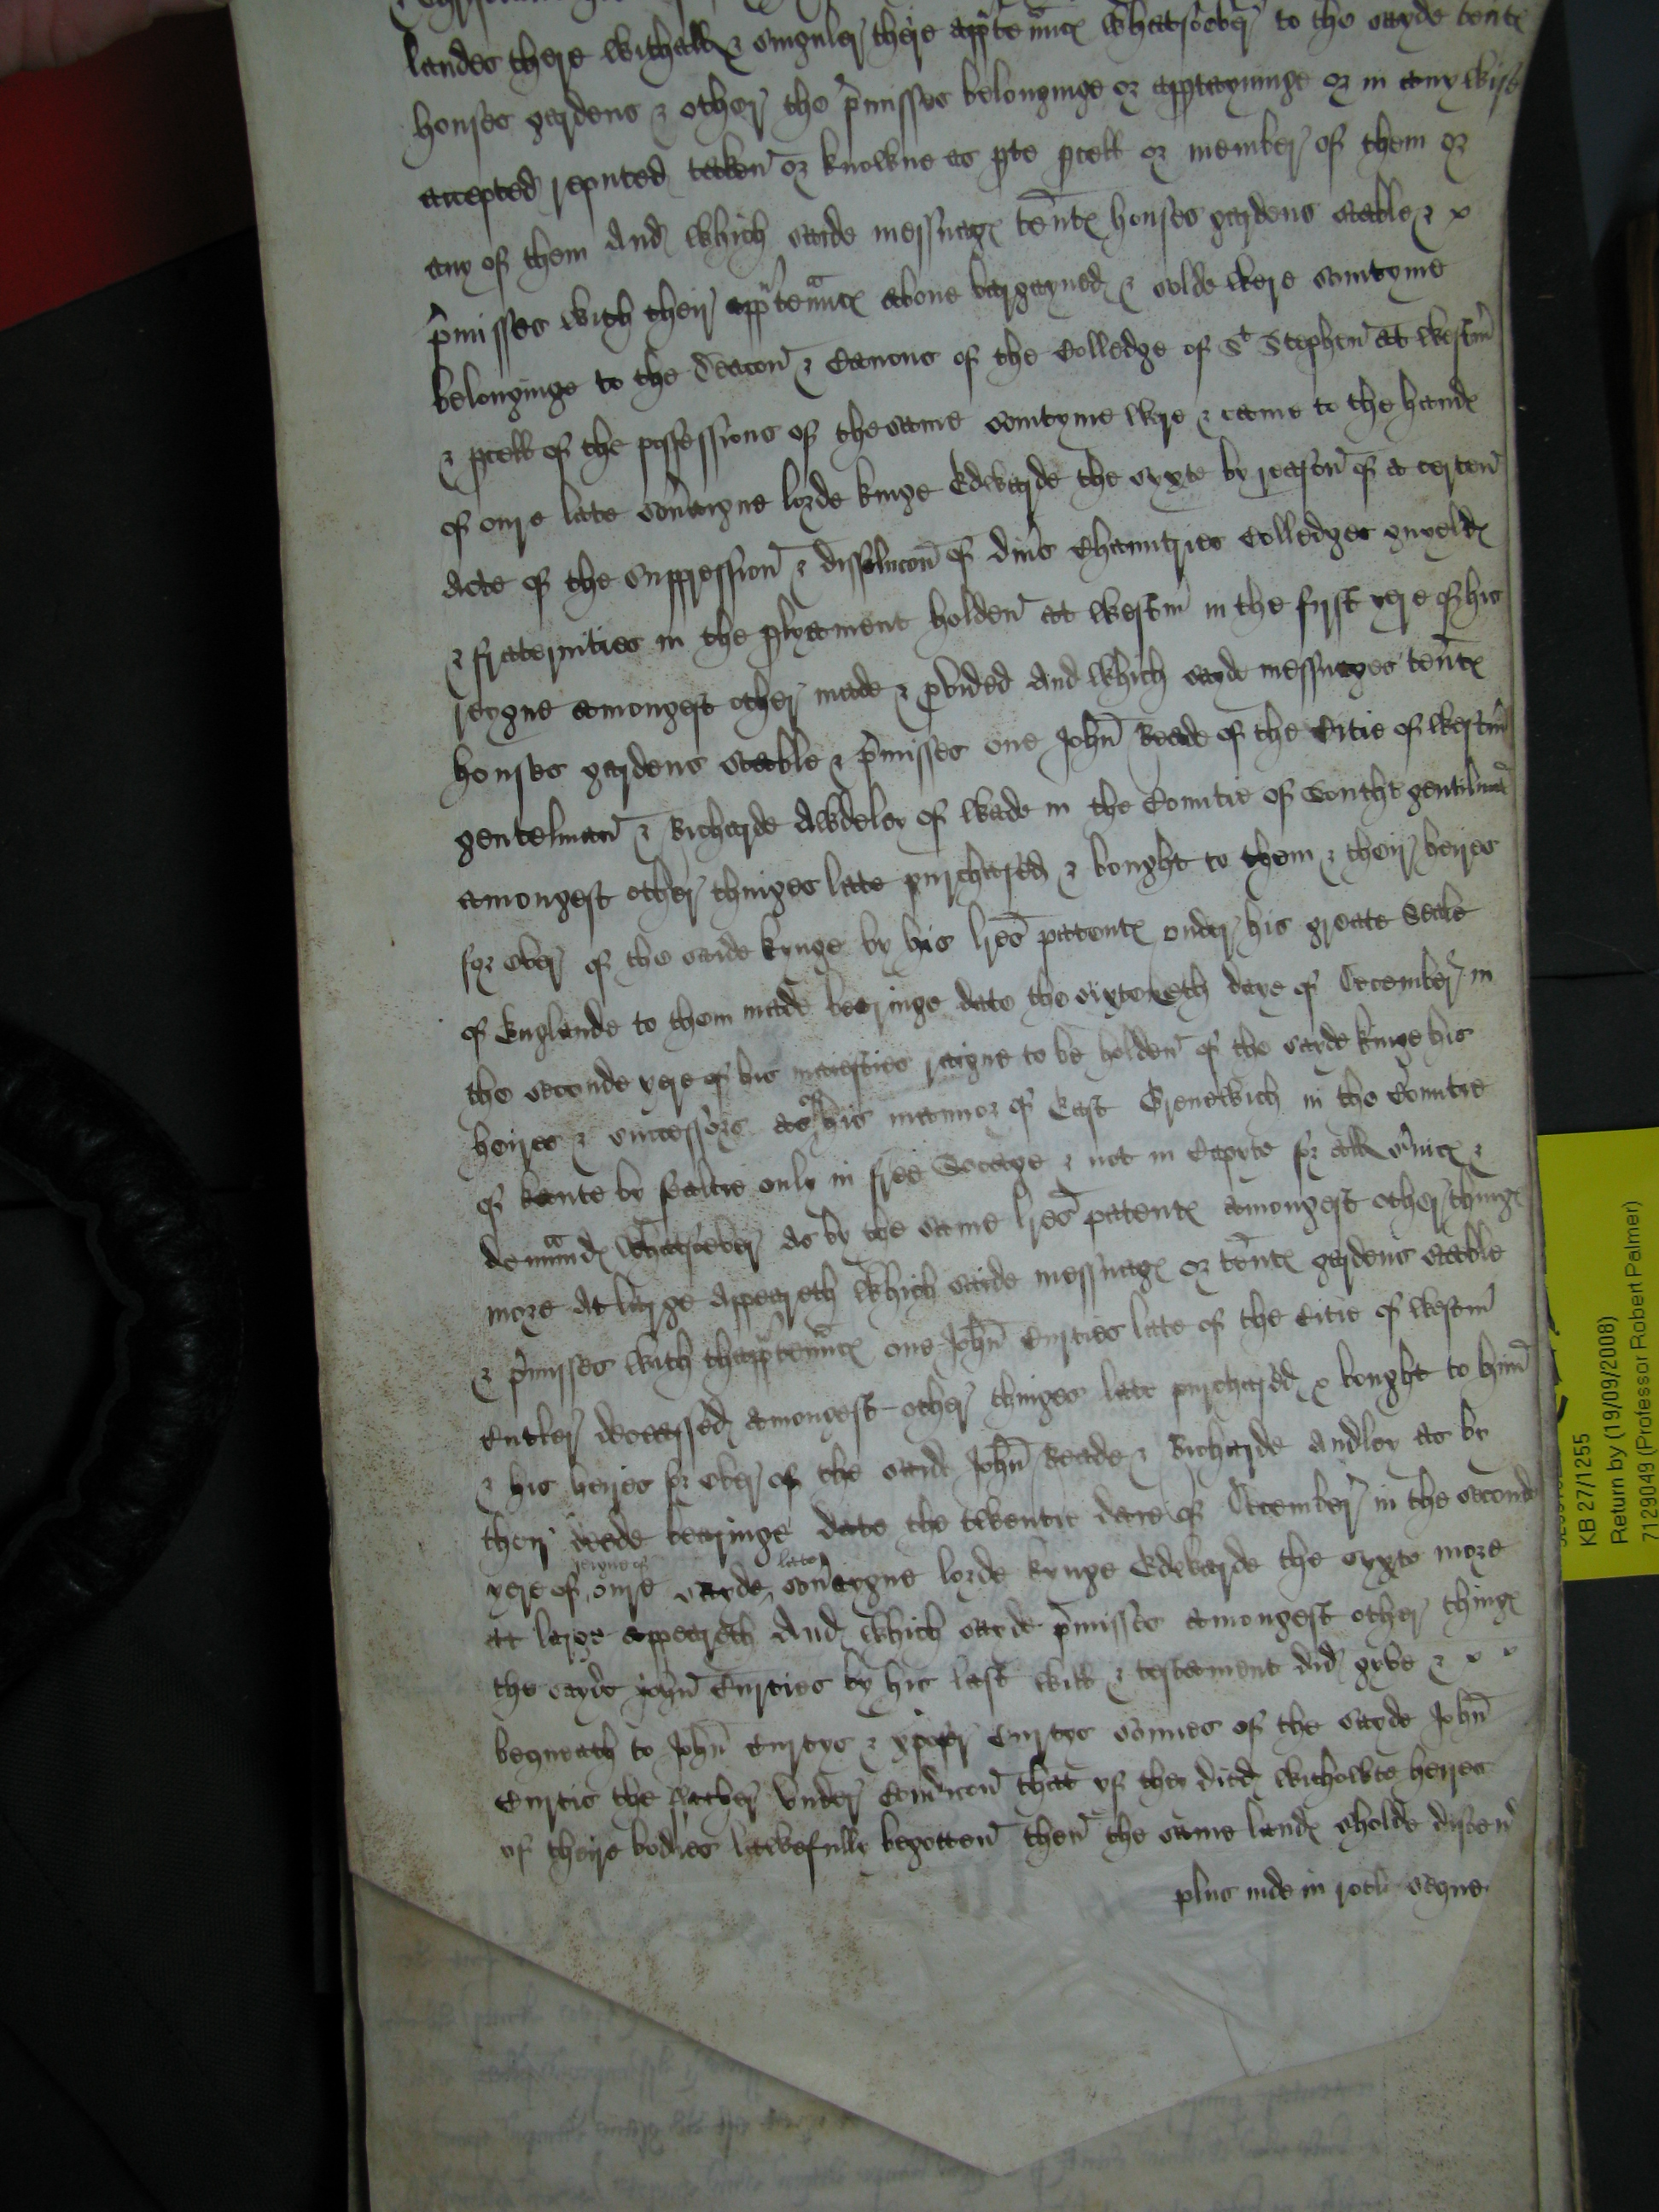 landes there withall & singuler there app'tennc' whatsoever to the sayde tent'
houses gardens & other the p'misses belonginge or app'tayninge or in any wise
accepted reputed taken or knowne as p'te p'cell or member of them or
any of them And which saide messuag' tent' houses gardens stable & x
p'misses with their app'tennc' above bargayned & solde were somtyme
belonginge to the Deacon & Canons of the Colledge of St Stephen at Westm'
& p'cell of the possessions of the same somtyme were & came to the hand'
of oure late sov'aigne lorde kinge Edwarde the syxte by reason of a certen
Acte of the suppression & dissolucon of div's Chauntries Colledges guyeld'
& fraternities in the p'lyament holden at Westm' in the fyrst yere of his
reygne amongest other made & p'vided And which sayde messuages tent'
houses gardens stable & p'misses one John Reade of the Citie of Westm'
gentelman & Richarde Awdeley of Wade in the Countie of Southt gentilma'
amongest other thinges late purchased & bought to them & their heires
for ever of the saide kynge by his l'res patent' under his greate Seale
of Englande to them made beringe date the sixteneth daye of December in
the seconde yere of his maiesties raigne to be holden of the sayde kinge his
heires & successors as of his mannor of East Grenewich in the Countie
of kente by fealtie only in free Socage & not in Capyte for all s'vic' &
demaund' whatsoever As by the same l'res patent' amongest other thing'
more At large Appeareth Which saide messuag' or tent' gardens stable
& p'misses with thapp'tennc' one John Curties late of the Citie of Westm'
Cutler deceassed amongest other thinges late purchased x bought to him
& his heires for ever of the sayd John Reade & Richarde Audley as by
their deede bearinge date the twentie daye of December in the second
yere of reigne of oure sayde late sov'aygne lorde kynge Edwarde the syxte more
at large appeareth And which sayde p'misses amongest other thing'
the sayde John Curties by his last will & testament did gyve & x x
bequeath to John Curtys & xpofer Curtys sonnes of the sayde John
Curtis the father Under Condicon that yf they died withowte heires
of theire bodies lawefully begotten then the same land' sholde discen'
plus inde in rotlo seque
KB 27/1255
Return by (19/09/2008)
7129049 (Professor Robert Palmer)